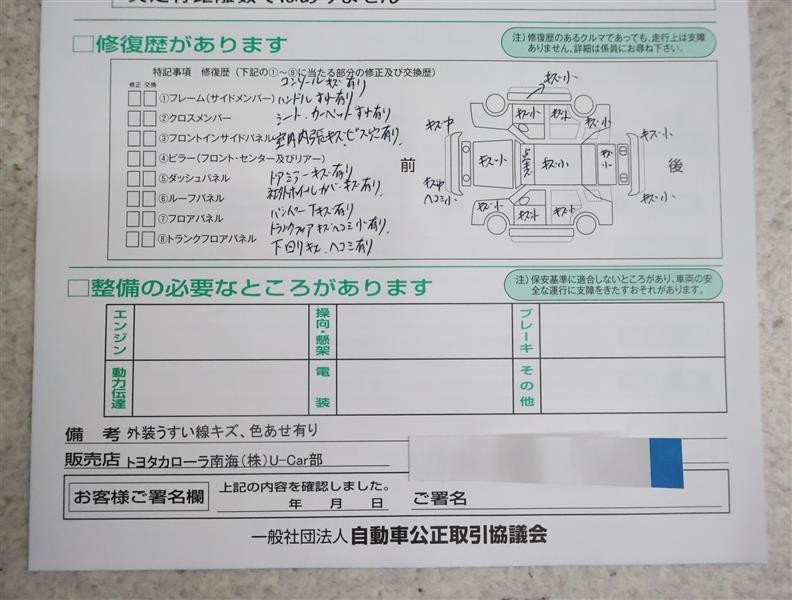 □修復歴があります
注）修復歴のあるクルマであっても、走行上は支障
ありません、詳細は係員にお尋ね下さい。
特記事項 修復歴（下記の①～⑧に当たる部分の修正及び交換歴）
修正 交換
コンソールキズ有り
①フレーム（サイドメンバー） ハンドルすれ有り
②クロスメンバー シート・カーペットすれ有り
③フロントインサイドパネル 室内内張キズ・ビス穴有り.
④ピラー（フロント・センター及びリアー）
⑤ダッシュパネル ドアミラーキズ有り
社外ホイールカバーキズ有り.
⑥ルーフパネル
⑦フロアパネル バンパー下キズ有り
トランクフロアキズヘコミ小有り.
⑧トランクフロアパネル 下回りキズ、ヘコミ有り
キズ小
キズ小 キズ小
キズ中 キズ小 キズ小
前 キズ小 点キズ キズ小 キズ小 後
キズ中
ヘコミ小 キズ小 キズ小
キズ小 キズ小
□整備の必要なところがあります
注）保安基準に適合しないところがあり、車両の安
全な運行に支障をきたすおそれがあります。
エンジン 操向・懸架 ブレーキ
動力伝達 電装 その他
備 考 外装うすい線キズ、色あせ有り
販売店 トヨタカローラ南海（株）U-Car部
お客様ご署名欄 上記の内容を確認しました。
年 月 日 ご署名
一般社団法人 自動車公正取引協議会